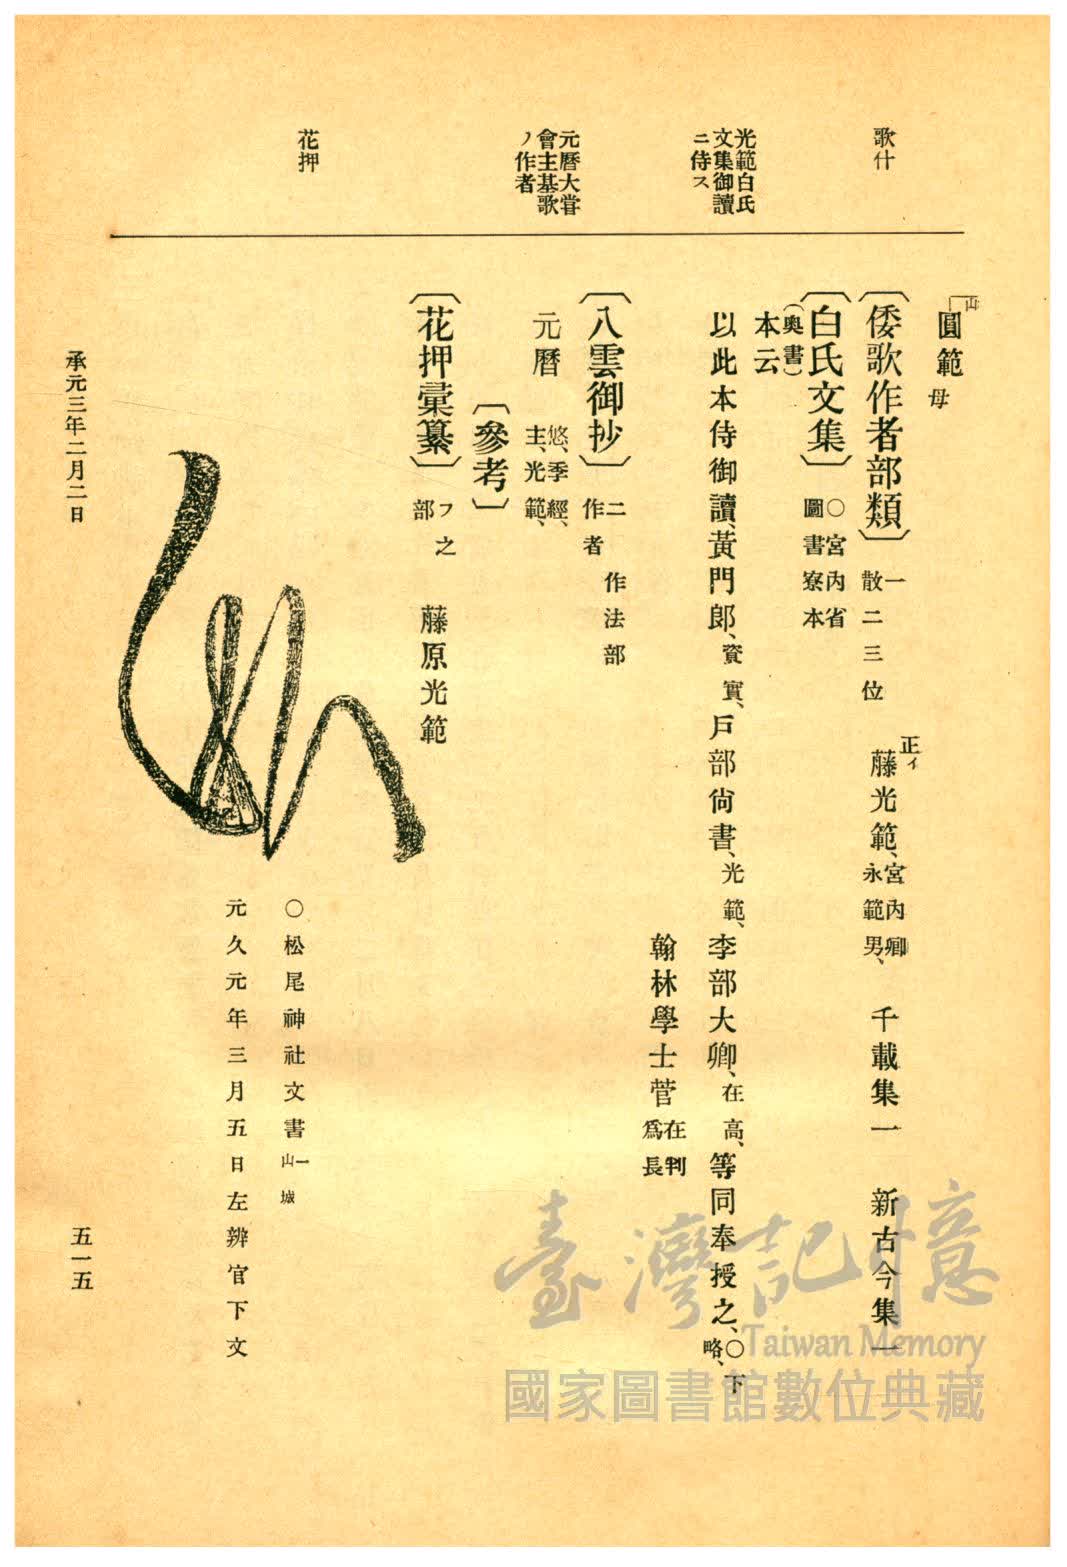 歌什
光範白氏
文集御讀
ニ侍ス
元曆大甞
會主基歌
ノ作者
花押
山
圓範
母
〔倭歌作者部類〕
一
散二三位
正イ
藤光範、
宮內卿
永範男、
千載集一
新古今集一
〔白氏文集〕
○宮內省
圖書寮本
(奥書)
本云
以此本侍御讀、黃門郞、資實、戶部尙書、光範、李部大卿、在高、等同奉授之、○下
略、
翰林學士菅
在判
爲長
〔八雲御抄〕
二 作法部
作者
元曆
悠、季經、
主、光範、
〔參考〕
〔花押彙纂〕
フ之
部
藤原光範
○松尾神社文書
一
山城
元久元年三月五日左辨官下文
承元三年二月二日
五一五
臺灣記憶
Taiwan Memory
國家圖書館數位典藏